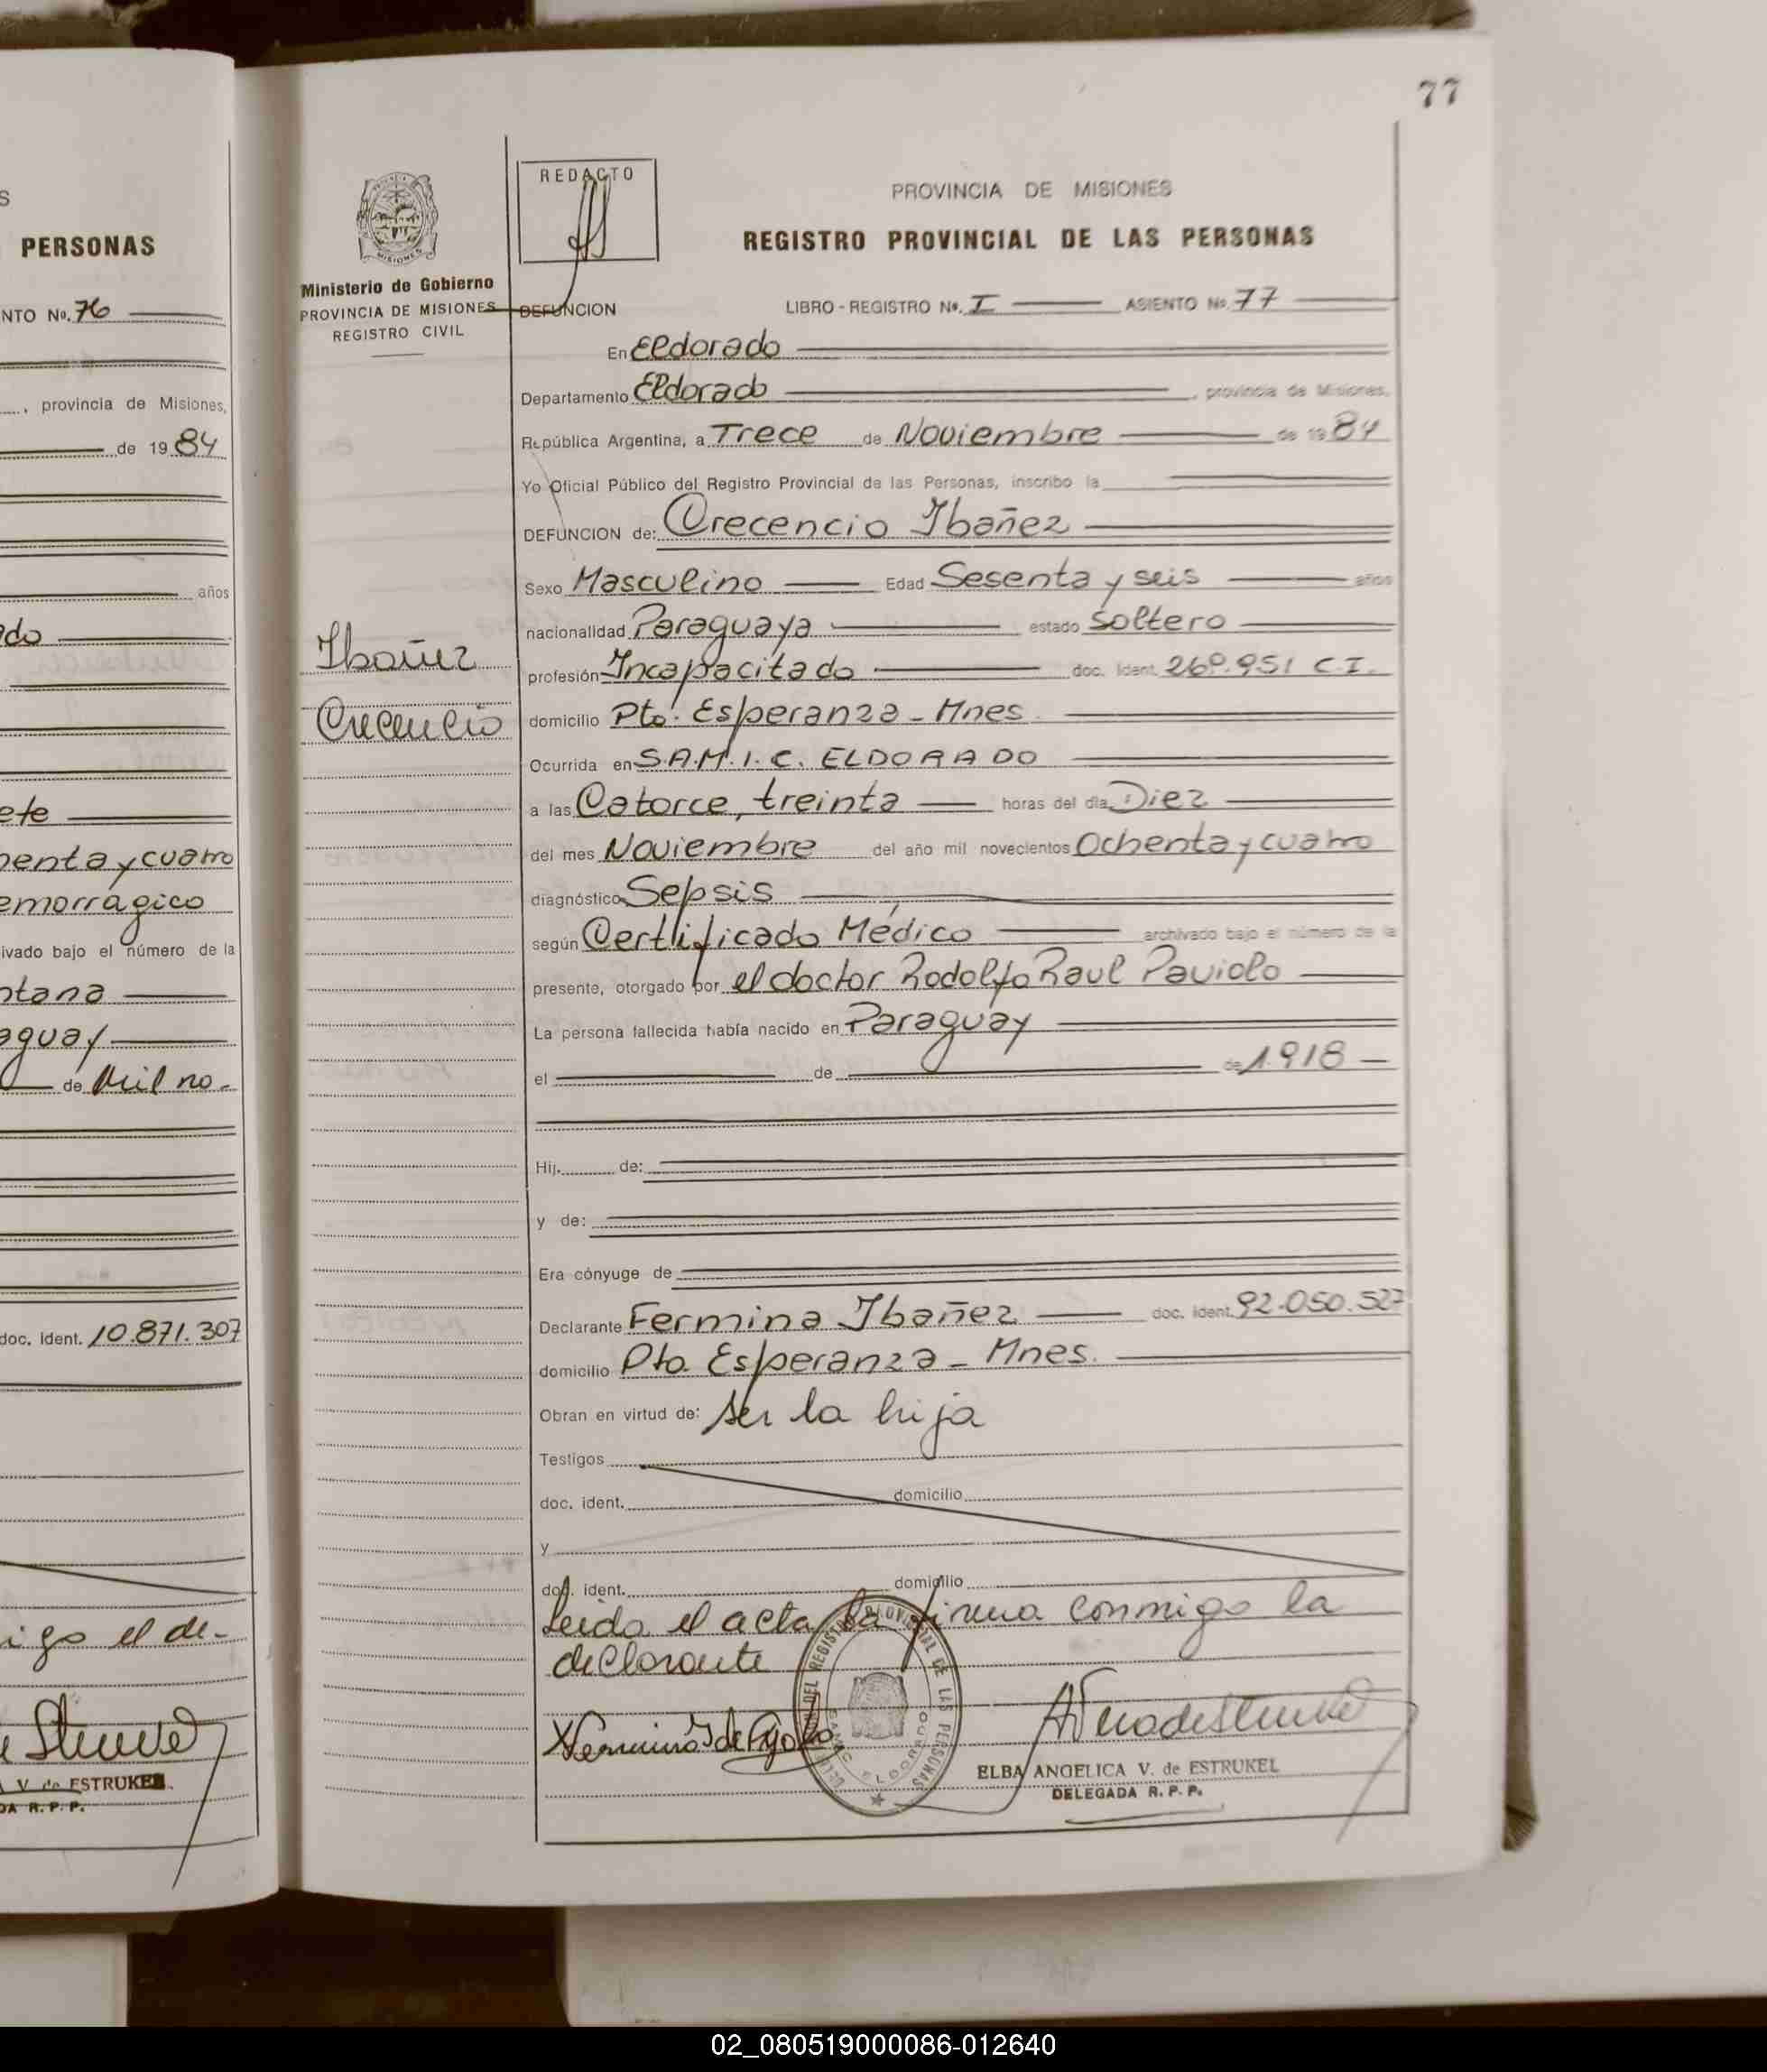 77
S
PERSONAS
NTO No. 76
, provincia de Misiones,
de 19 84
años
do
ete
enta y cuatro
emorrágico
ivado bajo el número de la
ntana
aguay
de Mil no-
doc. Ident. 10.871.307
igo el de-
V. de ESTRUKEL
DA R. P. P.
Ministerio de Gobierno
PROVINCIA DE MISIONES
REGISTRO CIVIL
Ibañez
Crecencio
REDACTO
PROVINCIA DE MISIONES
REGISTRO PROVINCIAL DE LAS PERSONAS
DEFUNCION LIBRO - REGISTRO No. I ASIENTO No. 77
En Eldorado
Departamento Eldorado , provincia de Misiones.
República Argentina, a Trece de Noviembre de 19 84
Yo Oficial Público del Registro Provincial de las Personas, inscribo la
DEFUNCION de: Crecencio Ibañez
Sexo Masculino Edad Sesenta y seis años
nacionalidad Paraguaya estado Soltero
profesión Incapacitado doc. Ident. 260.951 C.I.
domicilio Pto. Esperanza - Mnes.
Ocurrida en S.A.M.I.C. ELDORADO
a las Catorce, treinta horas del día Diez
del mes Noviembre del año mil novecientos Ochenta y cuatro
diagnóstico Sepsis
según Certificado Médico archivado bajo el número de la
presente, otorgado por el doctor Rodolfo Raul Paviolo
La persona fallecida había nacido en Paraguay
el de de 1.918
Hij. de:
y de:
Era cónyuge de
Declarante Fermina Ibañez doc. ident. 92.050.527
domicilio Pto. Esperanza - Mnes.
Obran en virtud de: ser la hija
Testigos
doc. ident. domicilio
y
doc. ident. domicilio
Leida el acta la firma conmigo la
declarante
DEL REGISTRO PROVINCIAL DE LAS PERSONAS
ELDORADO
ELBA ANGELICA V. de ESTRUKEL
DELEGADA R. P. P.
02_080519000086-012640